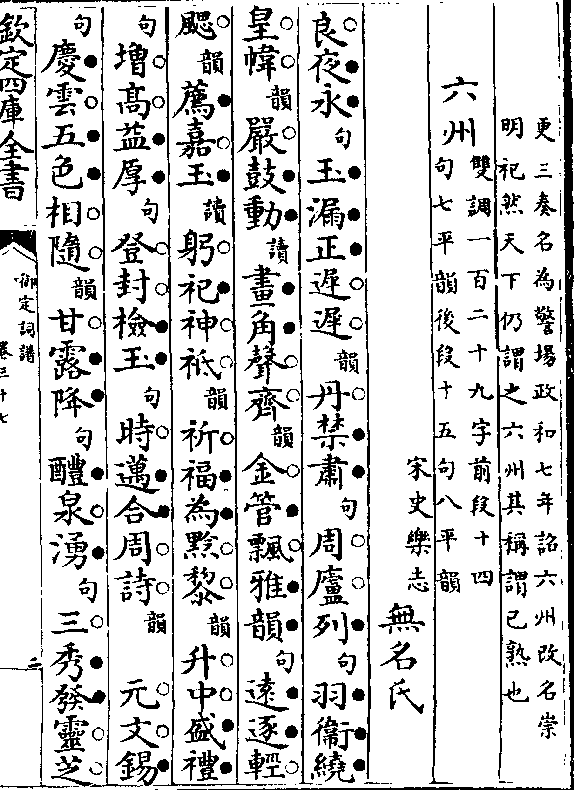 更三奏名為警場政和七年詔六州改名崇
明祀然天下仍謂之六州其稱謂已熟也
六州
雙調一百二十九字前段十四
句七平韻後段十五句八平韻
宋史樂志
無名氏
良夜永句玉漏正遲遲韻丹禁肅句周廬列句羽衞繞
皇幃韻嚴鼓動讀畫角聲齊韻金管飄雅韻句遠逐輕
颸韻薦嘉玉讀躬祀神祗韻祈福為黔黎韻升中盛禮
句增高益厚句登封檢玉句時邁合周詩韻 元文錫
句慶雲五色相隨韻甘露降句醴泉湧句三秀發靈芝
欽定四庫全書
御定詞譜
卷三十七
二